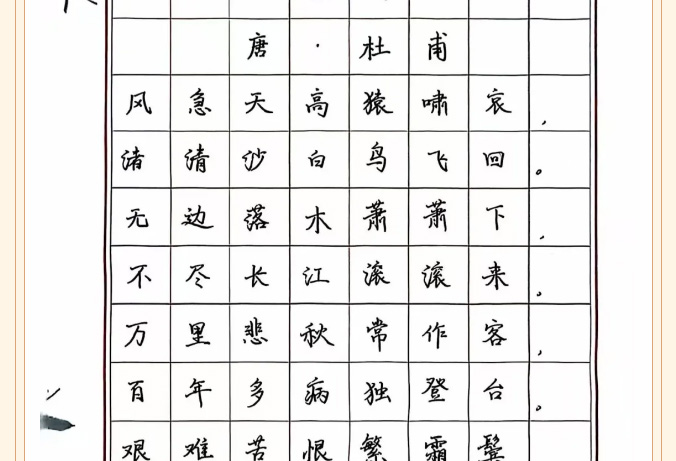 唐·杜甫
风急天高猿啸哀，
渚清沙白鸟飞回。
无边落木萧萧下，
不尽长江滚滚来。
万里悲秋常作客，
百年多病独登台。
艰难苦恨繁霜鬓